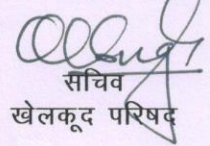 सचिव
खेलकूद परिषद